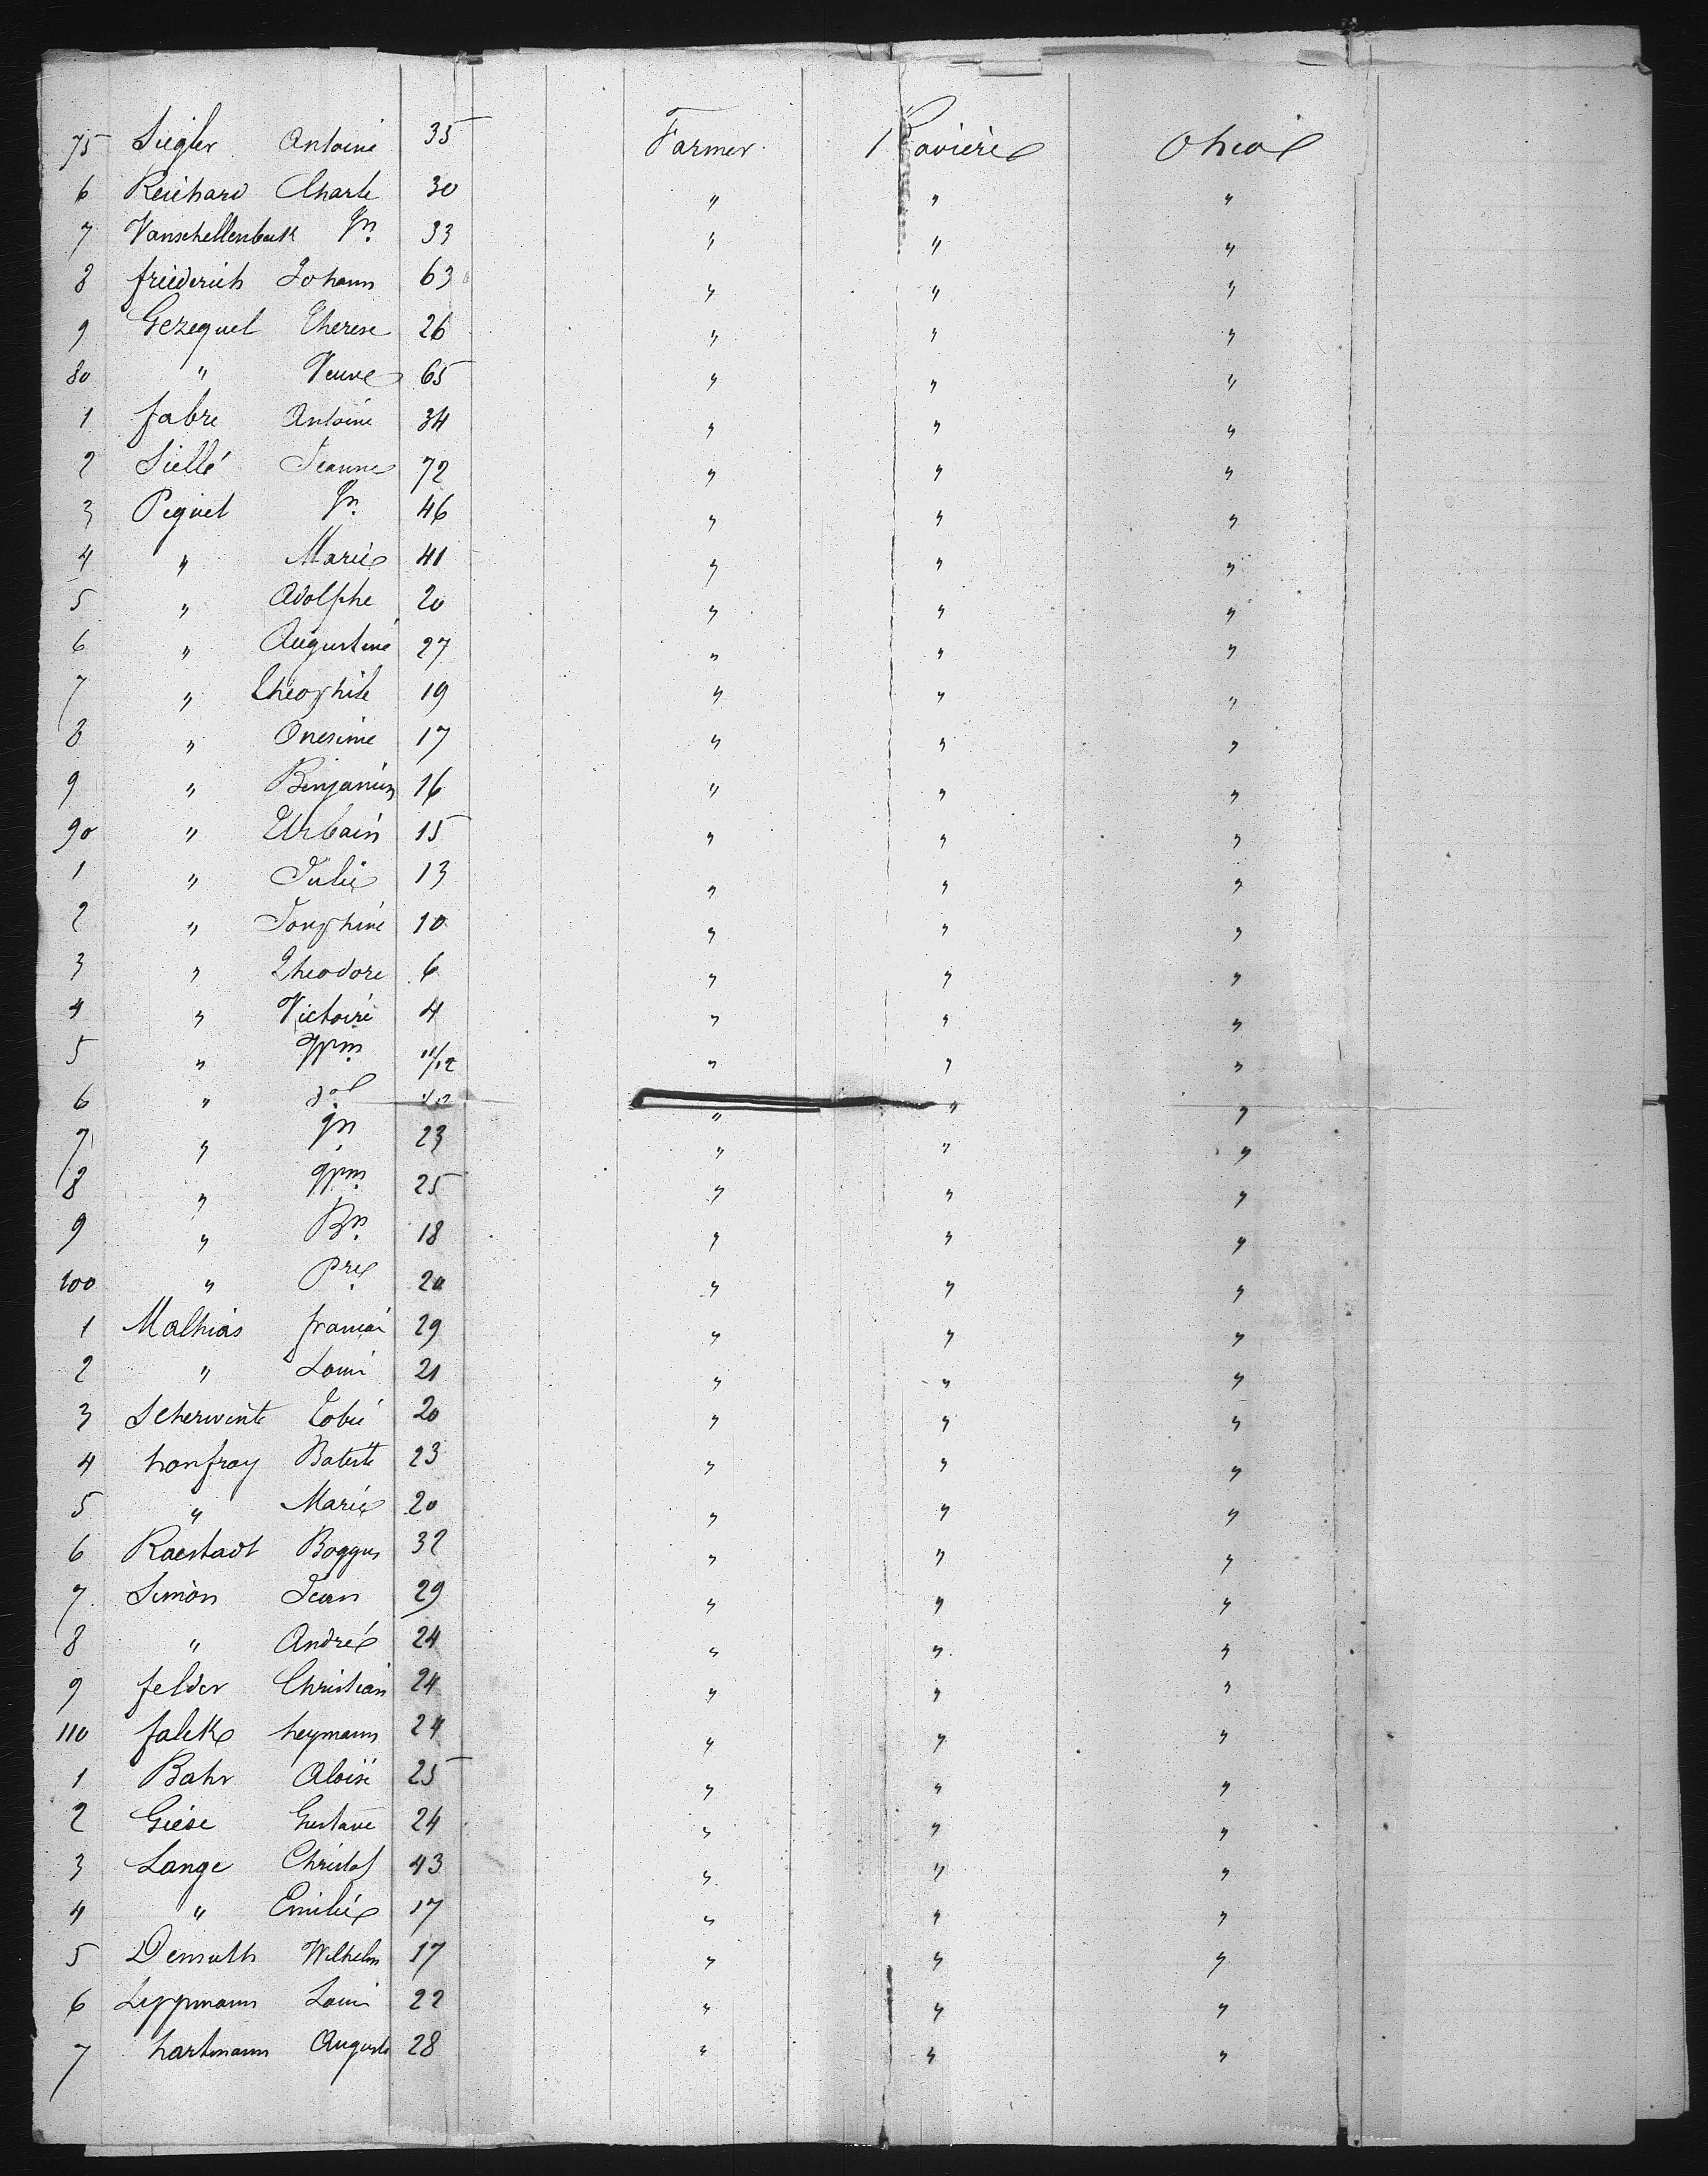 75 Siegler Antoine 35 Farmer Bavière Ohio
6 Reichard Charle 30 " " "
7 Vanschellenbeck Jn. 33 " " "
8 friederich Johann 63 " " "
9 Gezequel Therese 26 " " "
80 " Veuve 65 " " "
1 fabre Antoine 34 " " "
2 Siellé Jeanne 72 " " "
3 Peguet Jn. 46 " " "
4 " Marie 41 " " "
5 " Adolphe 20 " " "
6 " Augustine 27 " " "
7 " Theophile 19 " " "
8 " Onesime 17 " " "
9 " Benjamin 16 " " "
90 " Urbain 15 " " "
1 " Julie 13 " " "
2 " Josephine 10 " " "
3 " Theodore 6 " " "
4 " Victoire 4 " " "
5 " 11/12 " " "
6 " " " "
7 " Jn 23 " " "
8 " 25 " " "
9 " Bn. 18 " " "
100 " Pre 20 " " "
1 Mathias francois 29 " " "
2 " Louis 21 " " "
3 Scherwente Tobie 20 " " "
4 honfray Batiste 23 " " "
5 " Marie 20 " " "
6 Raestadt Boggus 32 " " "
7 Simon Jean 29 " " "
8 " André 24 " " "
9 felder Christian 24 " " "
110 falck heymann 24 " " "
1 Bahr Aloïse 25 " " "
2 Giése Gustave 24 " " "
3 Lange Christof 43 " " "
4 " Emilie 17 " " "
5 Demuth Wilhelm 17 " " "
6 Lippmann Louis 22 " " "
7 hartmann Auguste 28 " " "